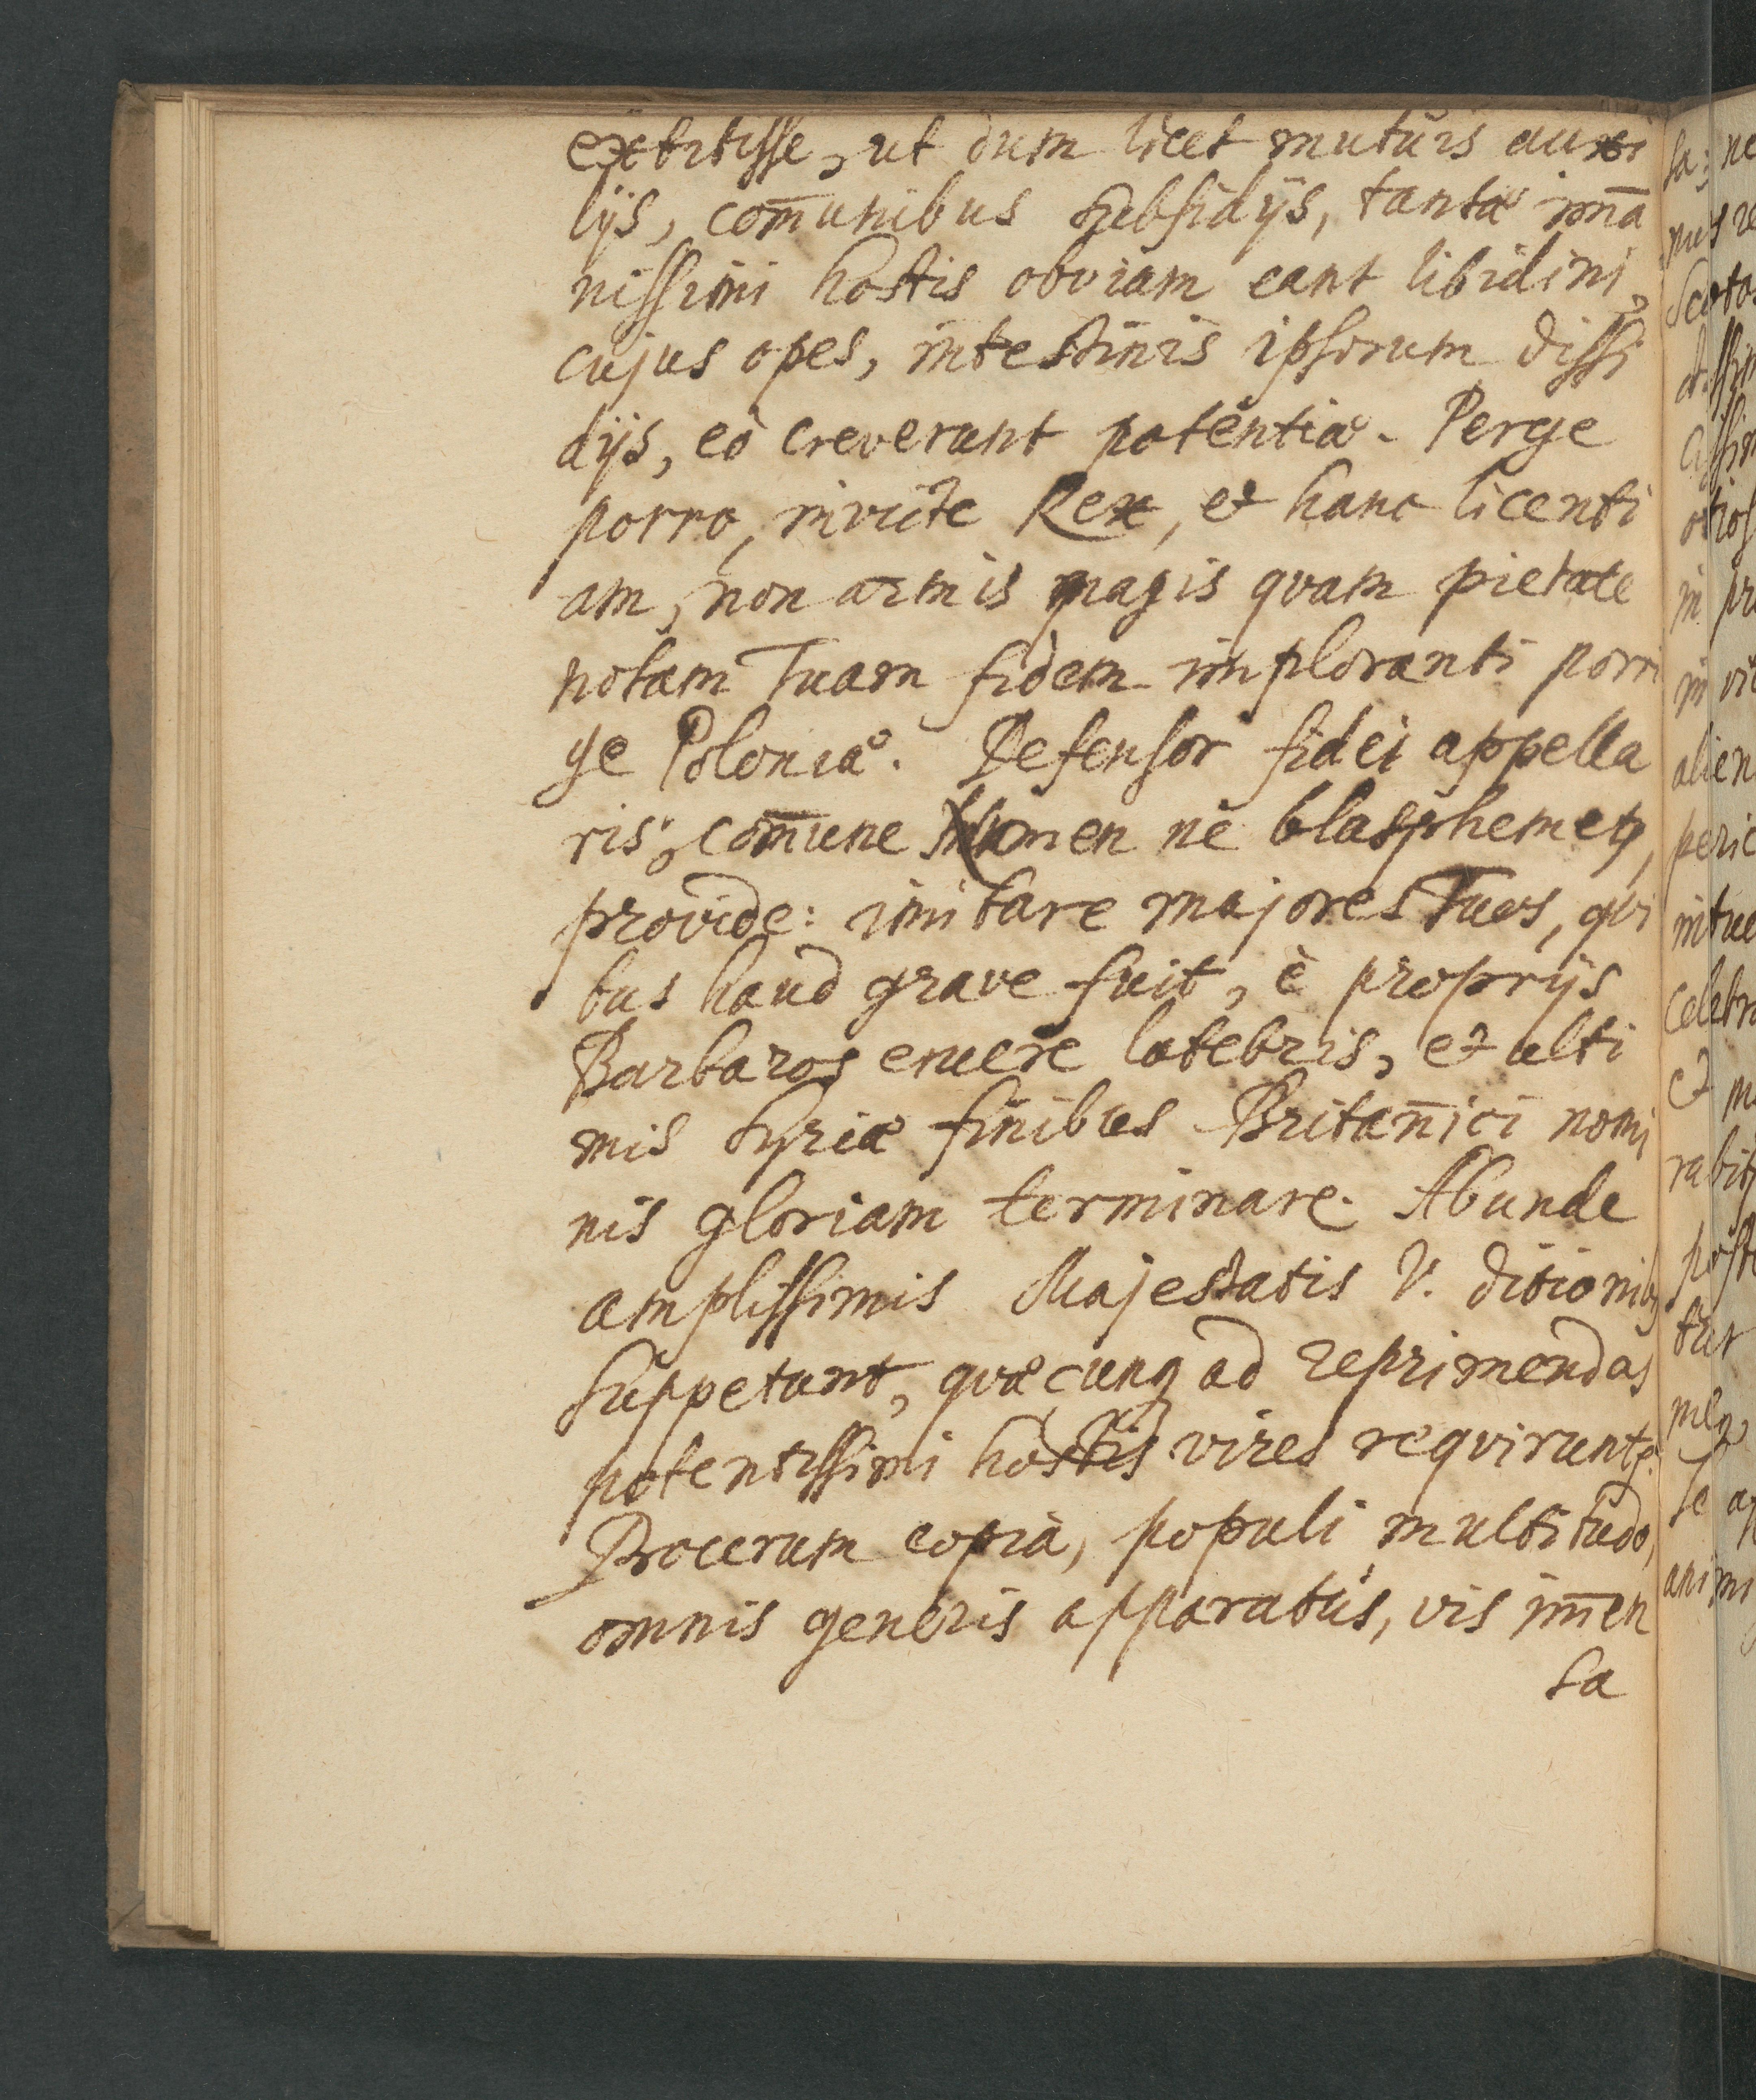 extitisse, ut dum licet mutuis auxi
lijs, com̄unibus subsidijs, tantæ im̄a
nissimi hostis obviam eant libidini,
cujus opes, intestinis ipsorum dissi
dijs, eò creverunt potentiæ. Perge
porro, invicte Rex, et hanc licenti
am, non armis magis qvam pietate
notam Tuam fidem imploranti porri
ge Poloniæ. Defensor fidei appella
ris, com̄une Numen nè blasphemetꝫ,
provide: imitare majores Tuos, qvi
bus haud grave fuit, è proprijs
Barbaros eruere latebris, et ulti
mis Syriæ finibus Britan̄ici nomi
nis gloriam terminare. Abunde
amplissimis Majestatis V. ditionibꝫ
suppetunt, qvæcunqꝫ ad reprimendas
potentissimi hostis vires reqviruntꝫ.
Procerum copia, populi multitudo,
omnis generis apparatus, vis im̄en
sa